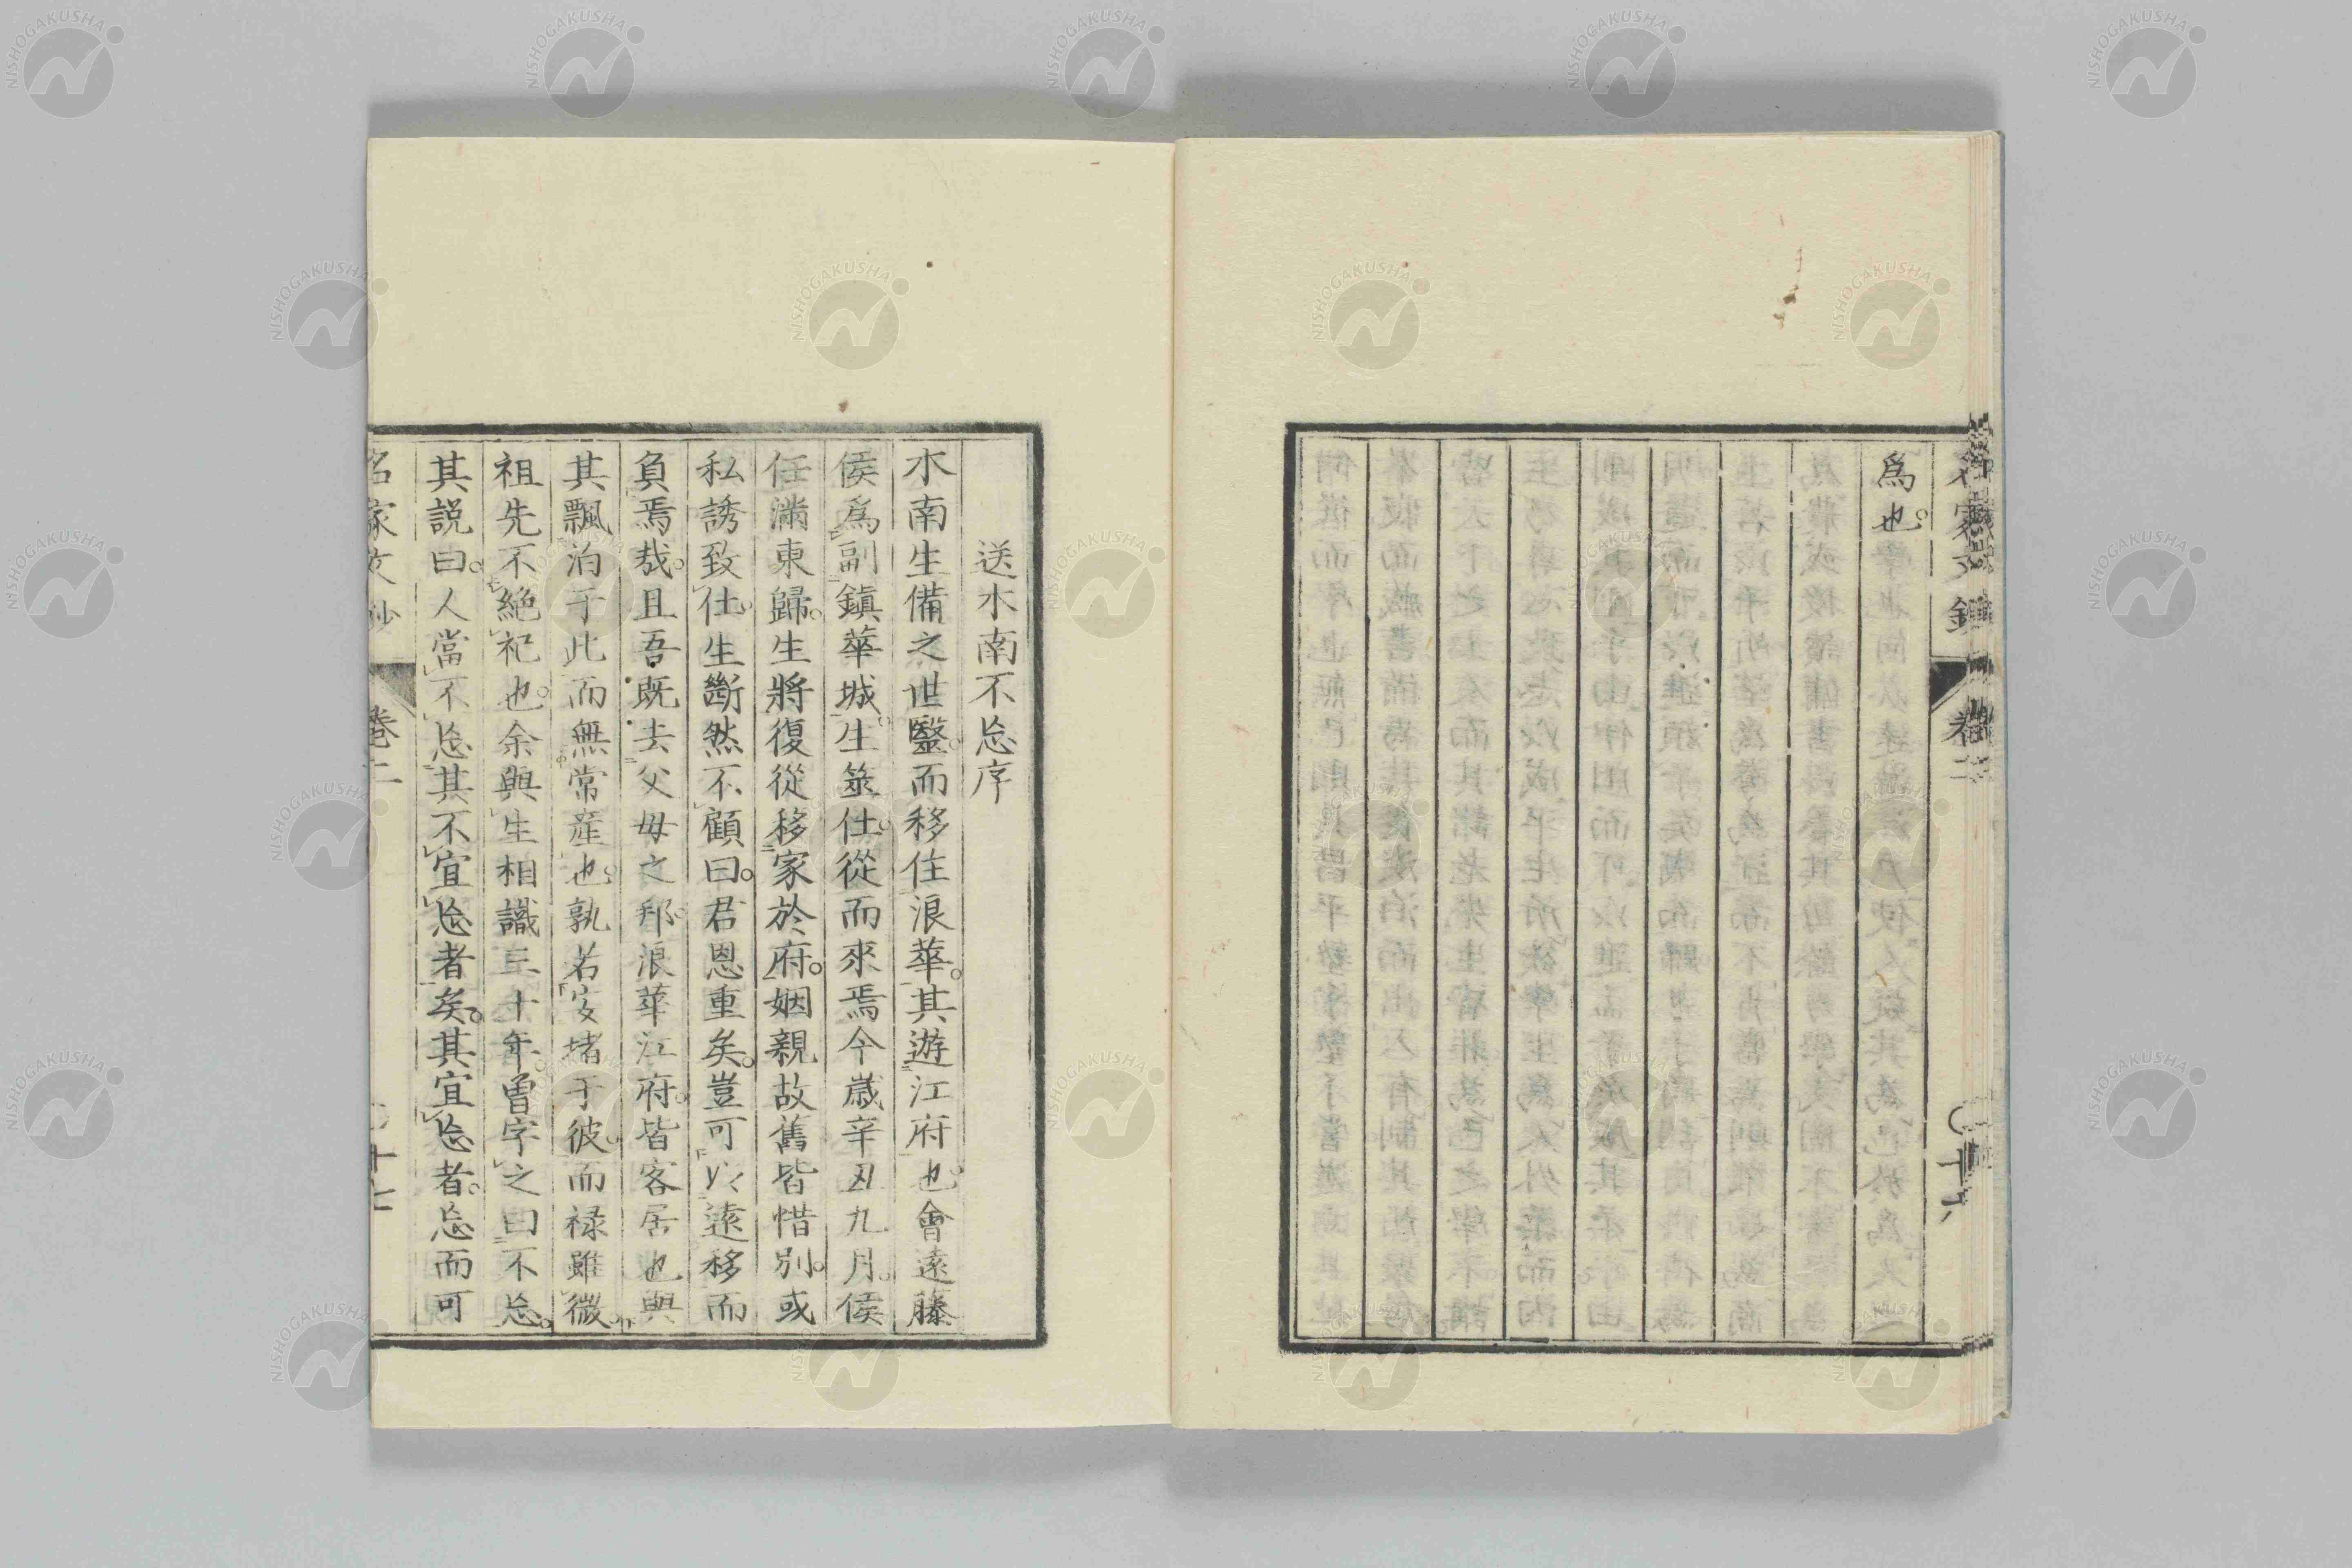 爲也。
送木南不忘序
木南生備之世醫。而移住浪華。其遊江府也。會遠藤
侯爲副鎭華城。生筮仕。從而來焉今歳辛丑九月。侯
任滿東歸。生將復從移家於府。姻親故舊皆惜別。或
私誘致仕。生斷然不顧曰。君恩重矣。豈可以遠移而
負焉哉。且吾既去父母之邦。浪華江府。皆客居也與
其飄泊于此而無常産也。孰若安堵于彼。而禄雖微。
祖先不絶祀也。余與生相識三十年。曾字之曰不忘。
其説曰。人當不忘其不宜忘者矣。其宜忘者。忘而可
名家文鈔
卷二
十七
NISHOGAKUSHA